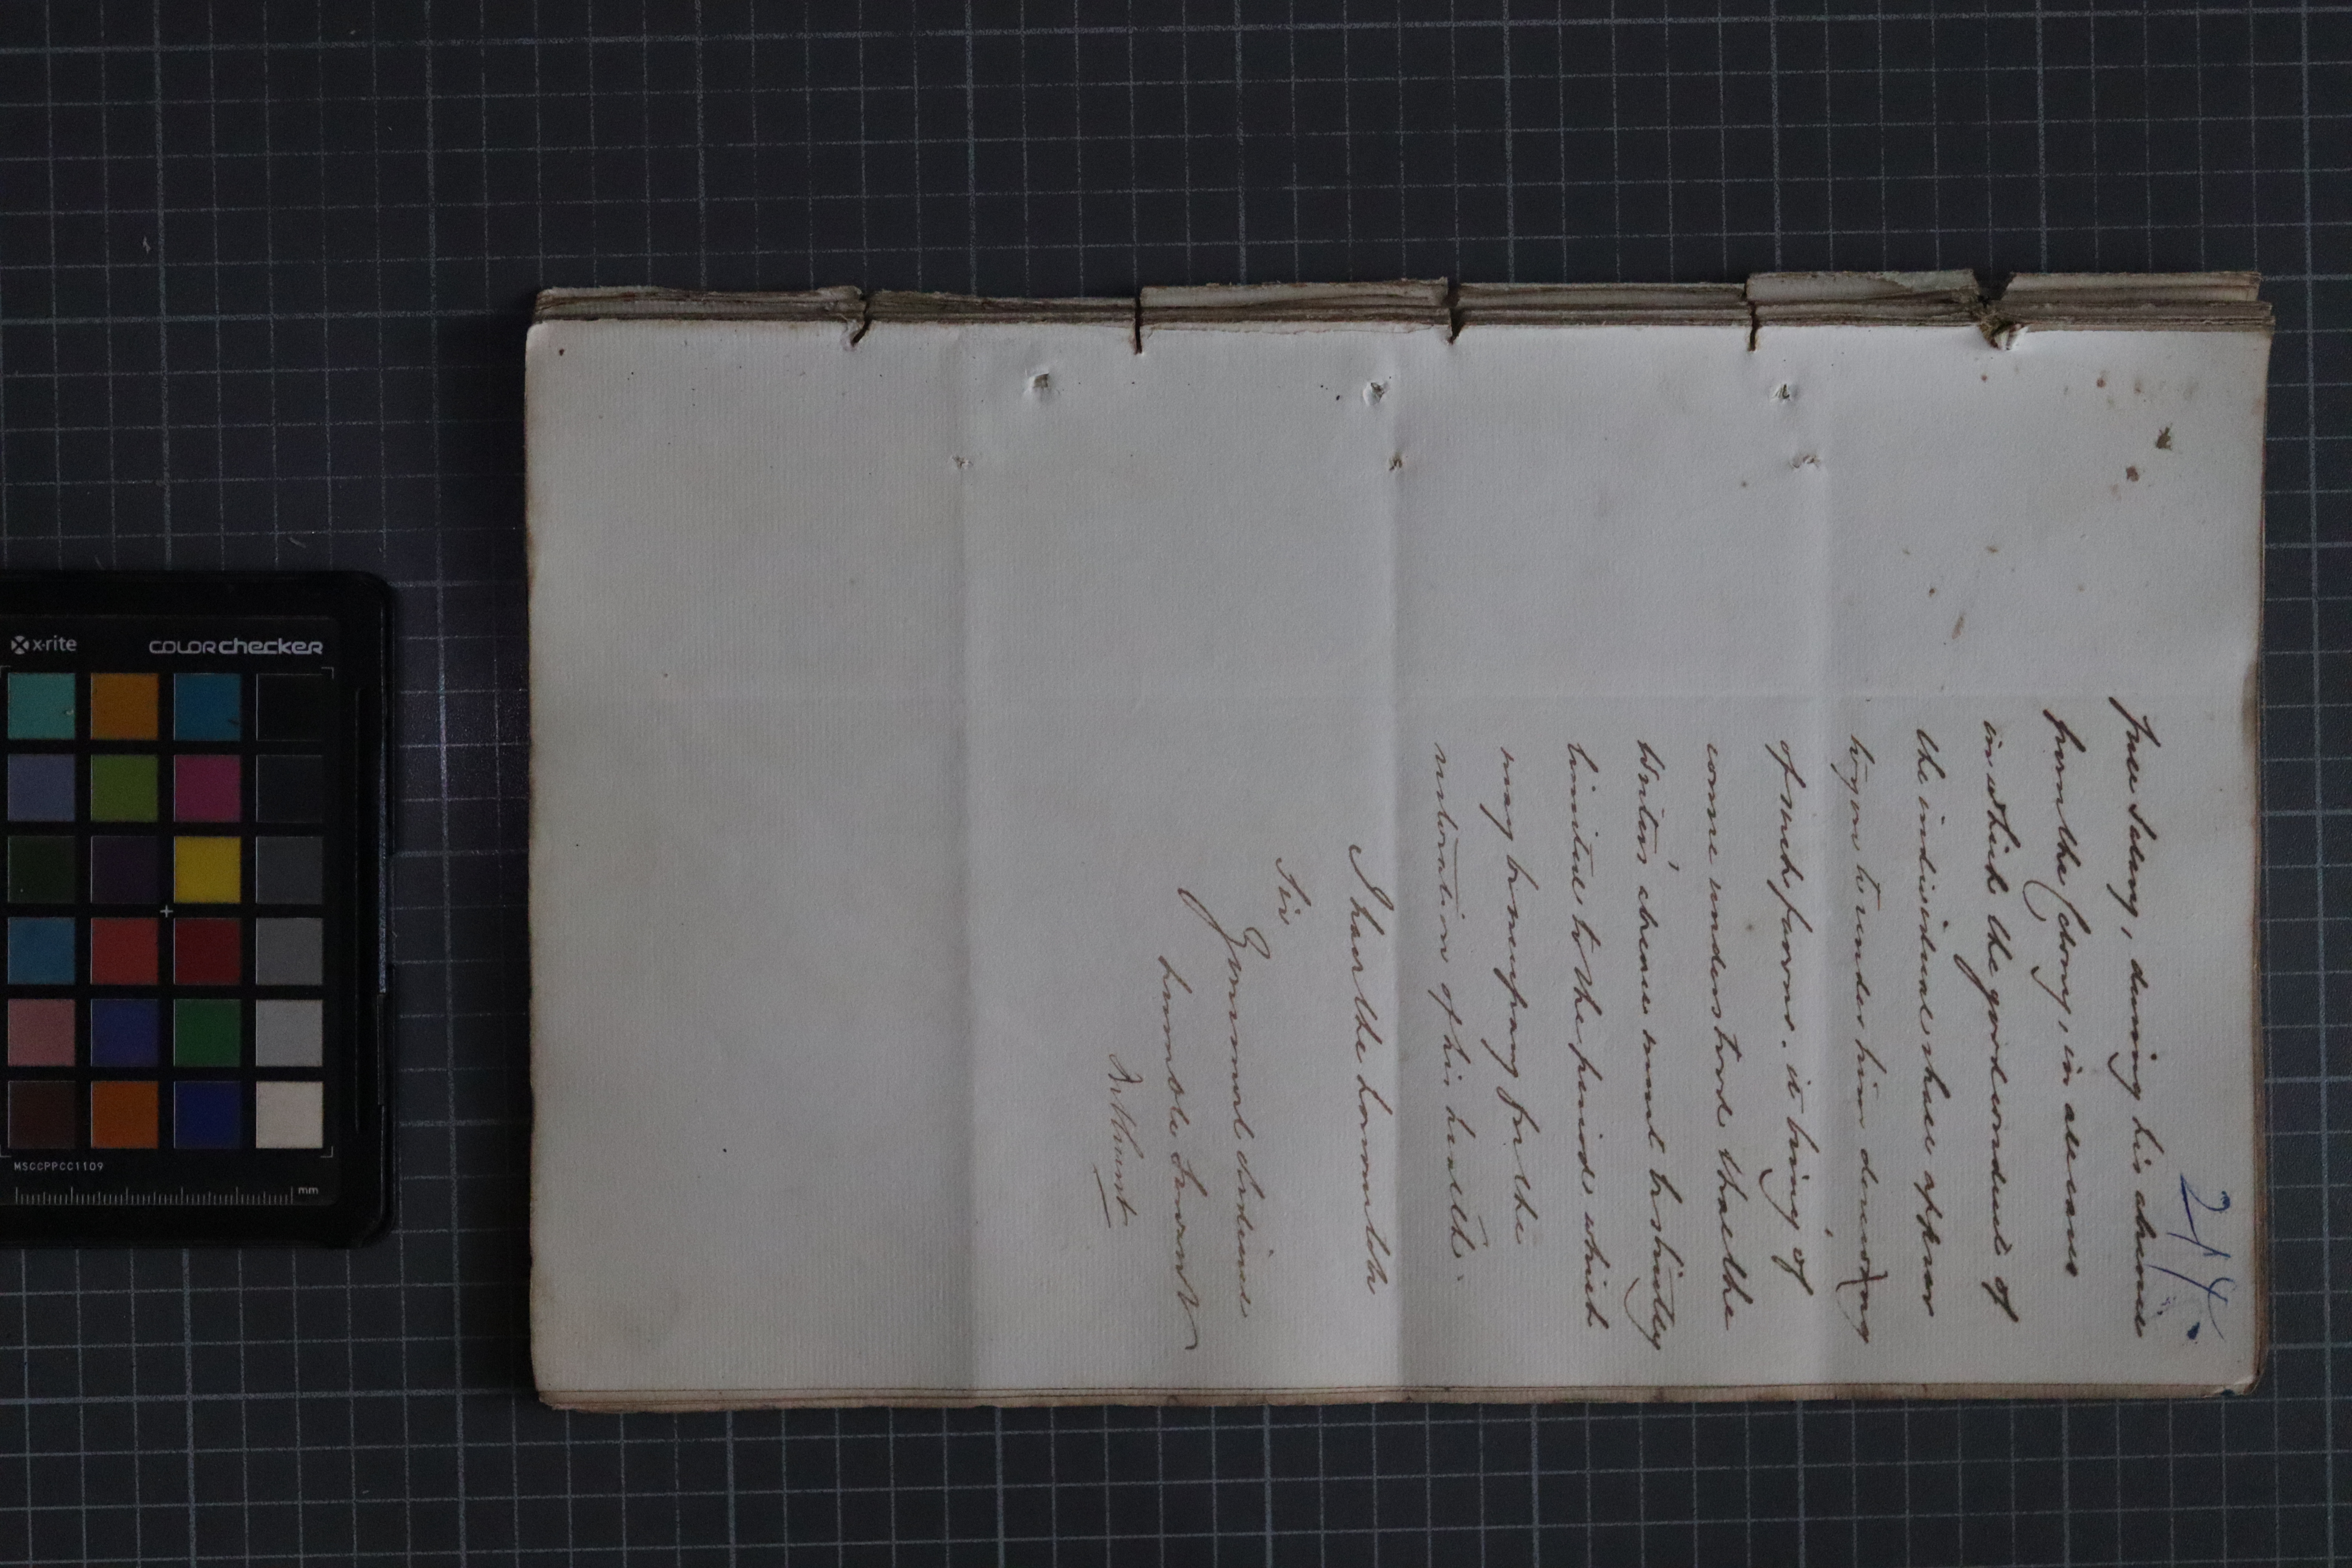 244
free Salary, during his absence
from the Colony, in all cases
in which the good conduct of
the individual shall appear
to you to render him deserving
of such favour. it being of
course understood that the
Writers' absence must be strictly
limited to the periods which
may be necessary for the
restoration of his health.
I have the honor to be
Sir
Your most obedient
humble Servant
Bathurst
x-rite colorchecker
MSCCPPCC1109
mm